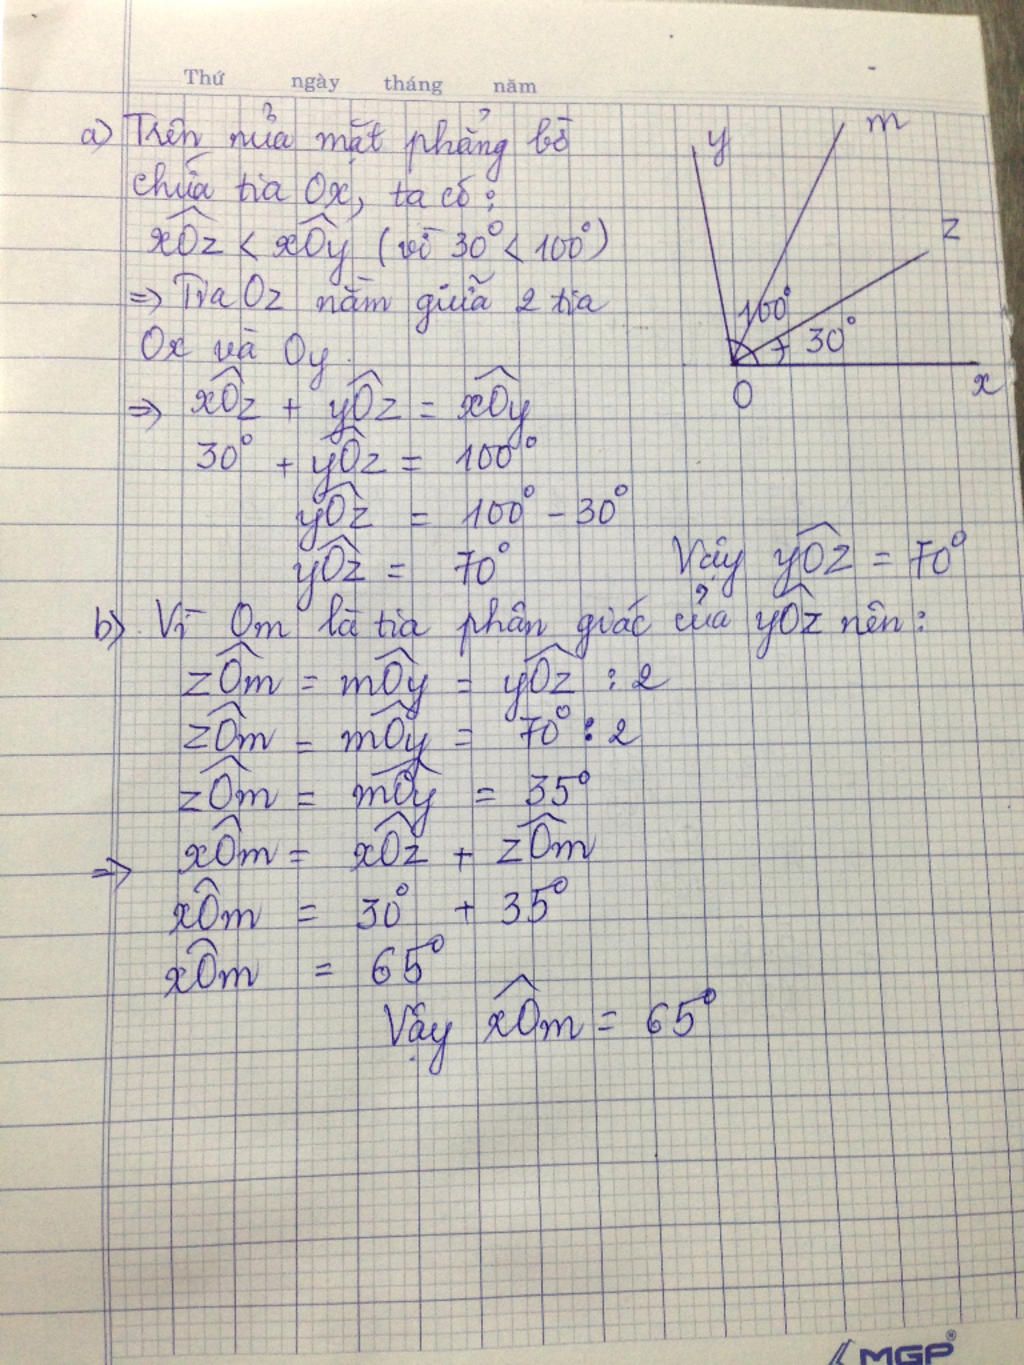 Thứ ngày tháng năm
a) Trên nửa mặt phẳng bờ
chứa tia Ox, ta có:
xÔz < xÔy (vì 30° < 100°)
=> Tia Oz nằm giữa 2 tia
Ox và Oy.
=> xÔz + yÔz = xÔy
30° + yÔz = 100°
yÔz = 100° - 30°
yÔz = 70° Vậy yÔz = 70°
b) Vì Om là tia phân giác của yÔz nên:
zÔm = mÔy = yÔz : 2
zÔm = mÔy = 70° : 2
zÔm = mÔy = 35°
=> xÔm = xÔz + zÔm
xÔm = 30° + 35°
xÔm = 65°
Vậy xÔm = 65°
y
m
z
100°
30°
O
x
MGP®